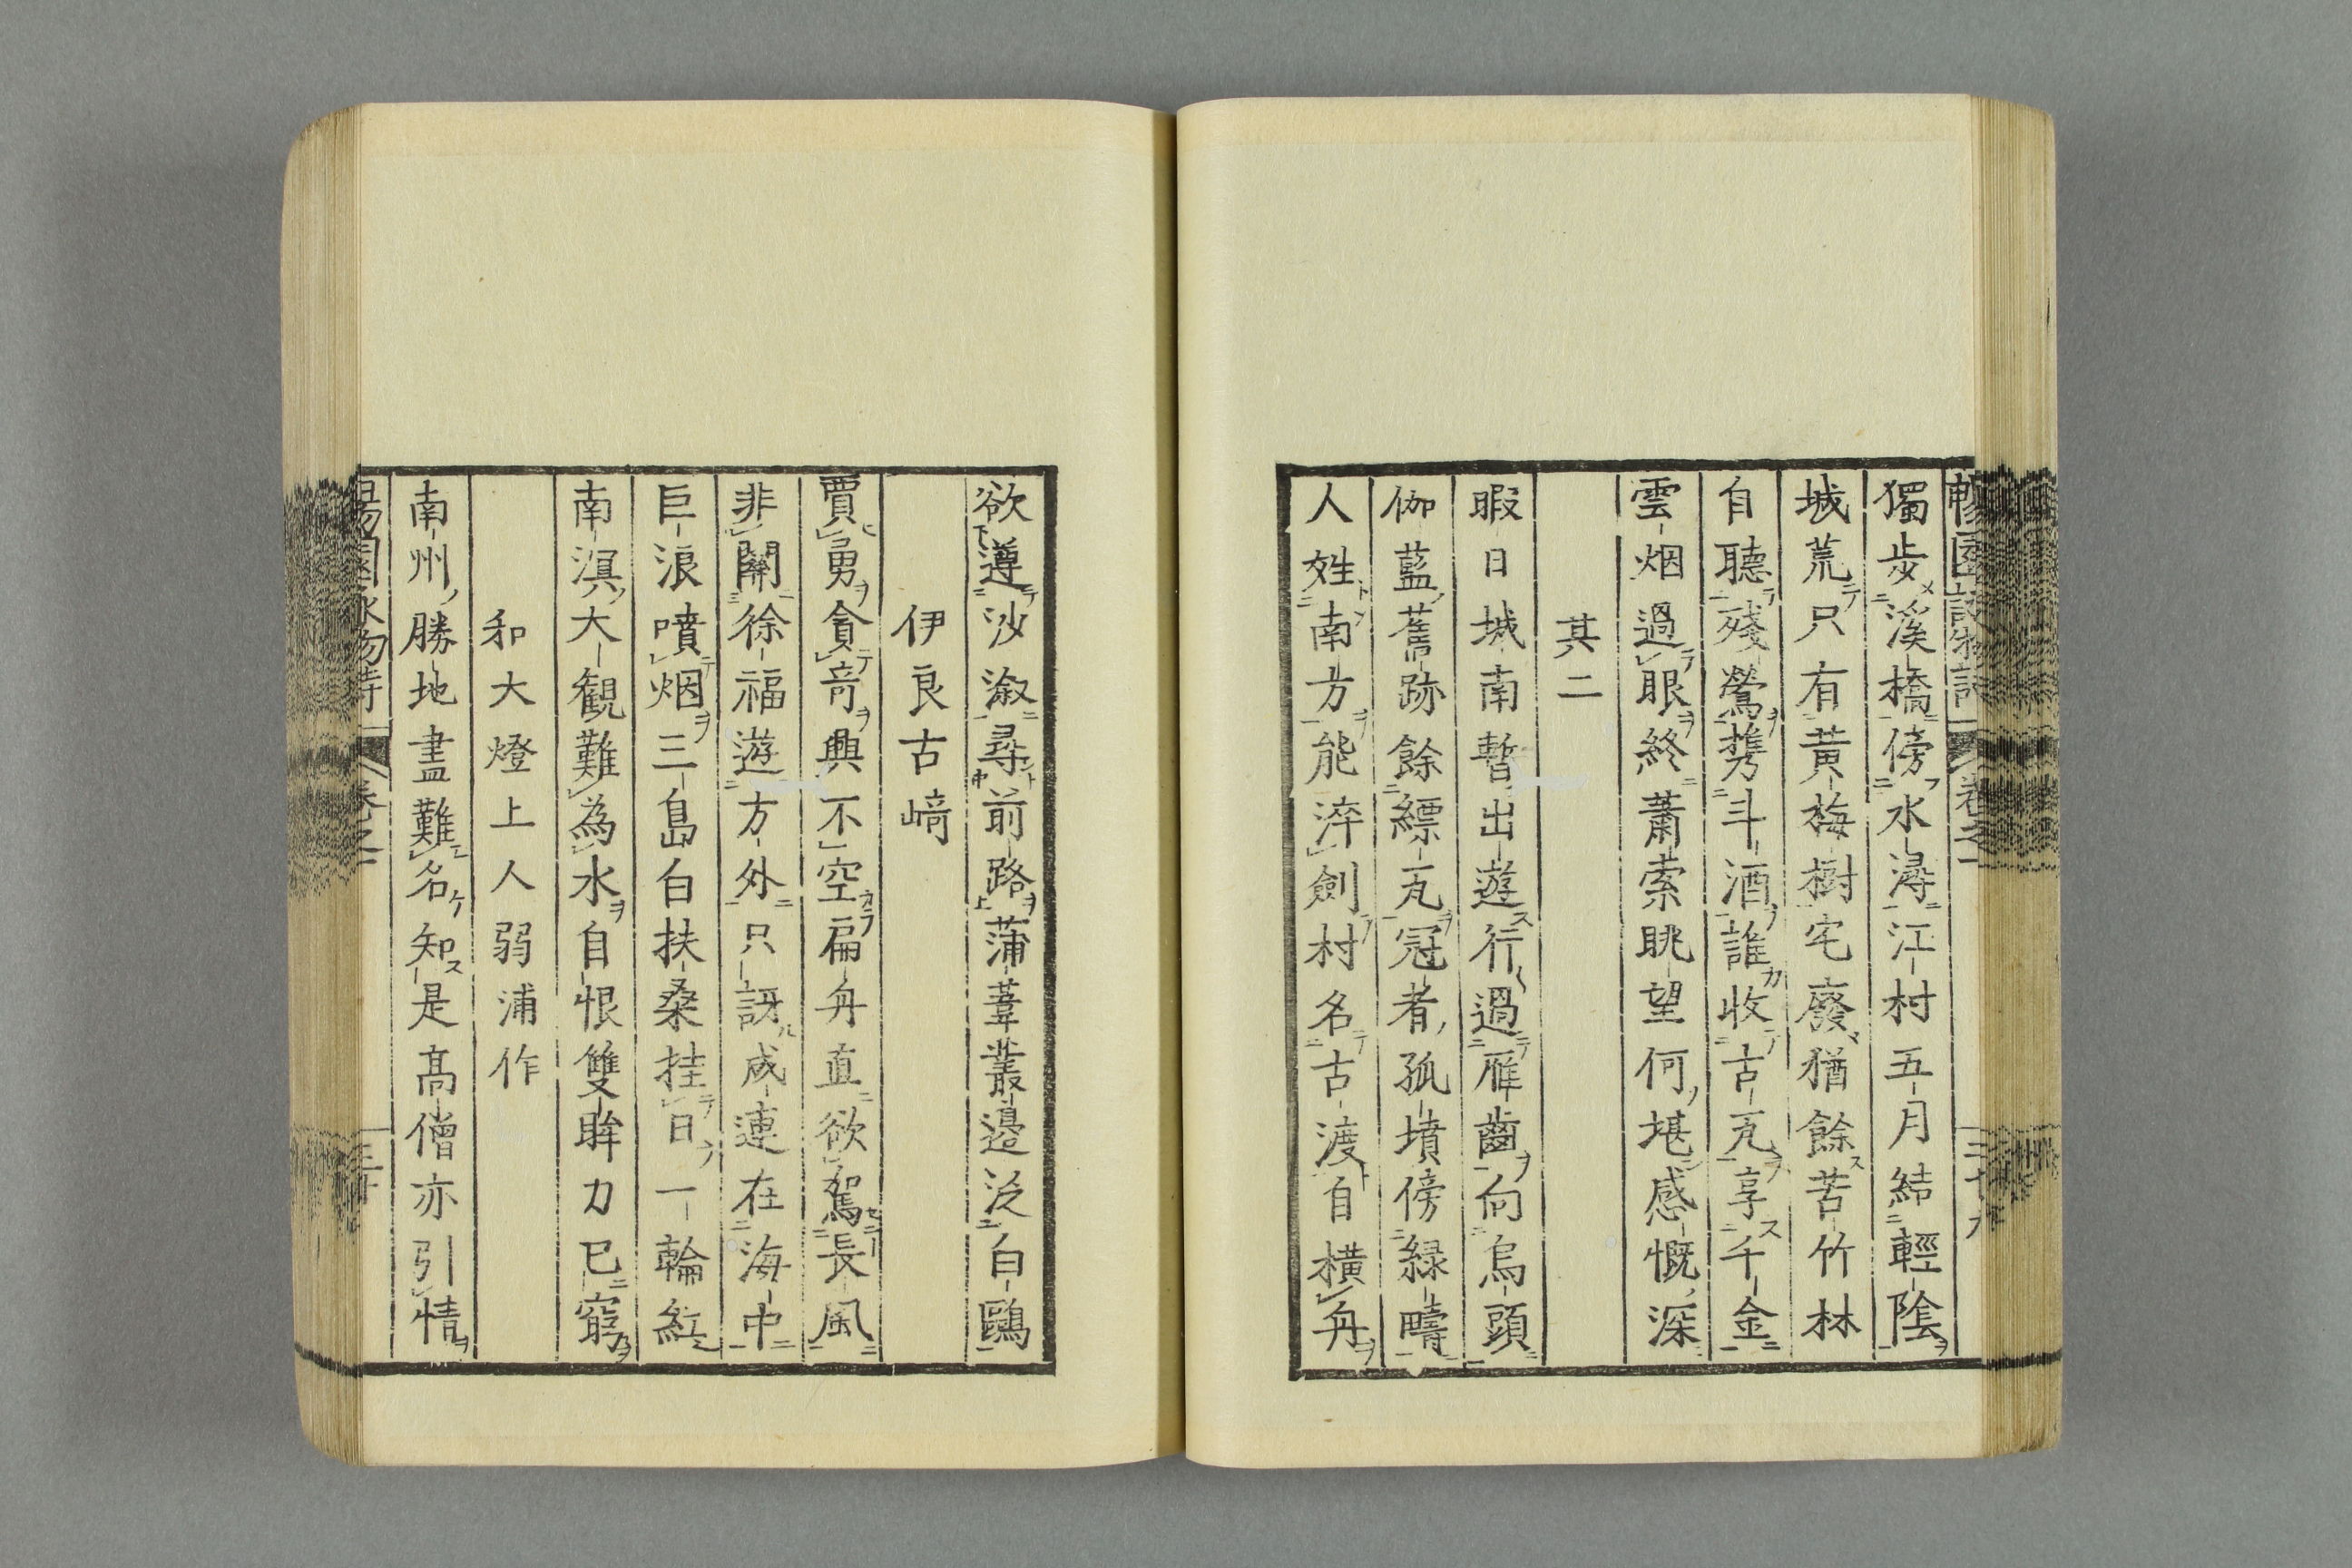 暢園詠物詩 卷之一
獨步溪橋傍水潯江村五月結輕陰
城荒只有黃梅樹宅廢猶餘苦竹林
自聽殘鶯携斗酒誰收古瓦享千金
雲烟過眼終蕭索眺望何堪感慨深
其二
暇日城南暫出遊行過雁齒向烏頭
伽藍舊跡餘縹瓦冠者孤墳傍緑疇
人姓南方能淬劍村名古渡自橫舟
欲遵沙溆尋前路蒲葦叢邊泛白鷗
伊良古﨑
賈勇貪奇興不空扁舟直欲駕長風
非關徐福遊方外只訝成連在海中
巨浪噴烟三島白扶桑挂日一輪紅
南溟大観難為水自恨雙眸力已窮
和大燈上人弱浦作
南州勝地盡難名知是高僧亦引情
暢園詠物詩 卷之一